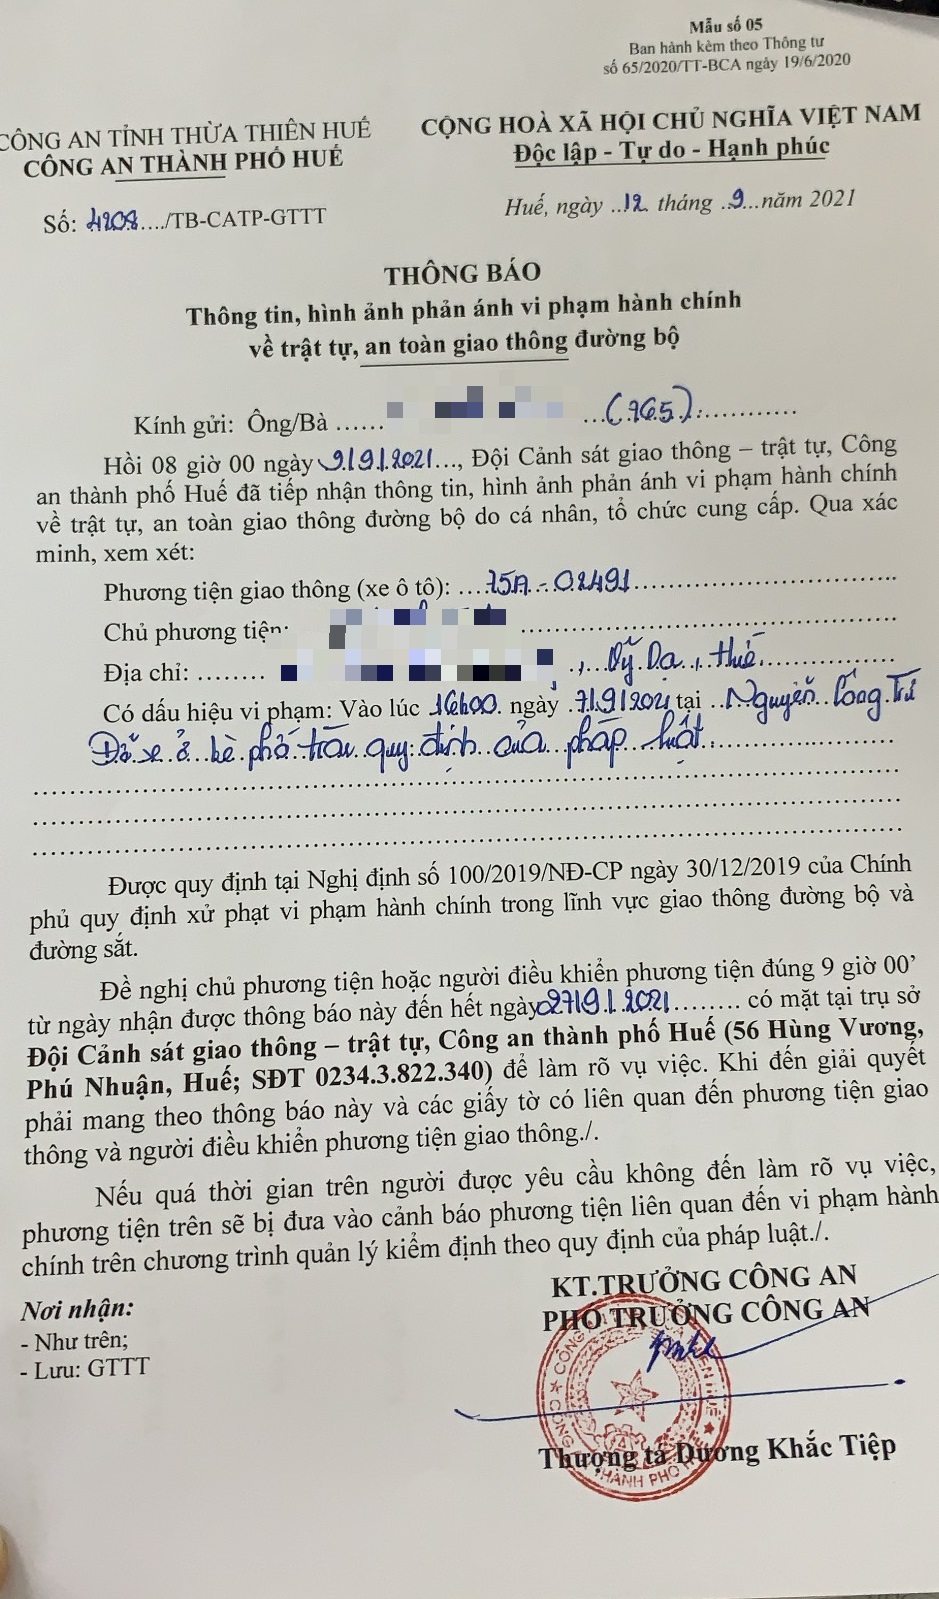 Mẫu số 05
Ban hành kèm theo Thông tư
số 65/2020/TT-BCA ngày 19/6/2020
CÔNG AN TỈNH THỪA THIÊN HUẾ
CÔNG AN THÀNH PHỐ HUẾ
CỘNG HOÀ XÃ HỘI CHỦ NGHĨA VIỆT NAM
Độc lập - Tự do - Hạnh phúc
Số: 4208..../TB-CATP-GTTT
Huế, ngày ..12. tháng .9...năm 2021
THÔNG BÁO
Thông tin, hình ảnh phản ánh vi phạm hành chính
về trật tự, an toàn giao thông đường bộ
Kính gửi: Ông/Bà ...... ...(765)............
Hồi 08 giờ 00 ngày 9/9/2021..., Đội Cảnh sát giao thông – trật tự, Công
an thành phố Huế đã tiếp nhận thông tin, hình ảnh phản ánh vi phạm hành chính
về trật tự, an toàn giao thông đường bộ do cá nhân, tổ chức cung cấp. Qua xác
minh, xem xét:
Phương tiện giao thông (xe ô tô): ....75A.-.02491..............................
Chủ phương tiện: ..........................................
Địa chỉ: ......... .,...Vỹ Dạ..,.Huế...................
Có dấu hiệu vi phạm: Vào lúc 16h00. ngày .7/9/2021 tại ..Nguyễn..Công.Trứ
Đỗ xe ở hè phố trái quy định của pháp luật.........................
Được quy định tại Nghị định số 100/2019/NĐ-CP ngày 30/12/2019 của Chính
phủ quy định xử phạt vi phạm hành chính trong lĩnh vực giao thông đường bộ và
đường sắt.
Đề nghị chủ phương tiện hoặc người điều khiển phương tiện đúng 9 giờ 00’
từ ngày nhận được thông báo này đến hết ngày 27/9/2021......... có mặt tại trụ sở
Đội Cảnh sát giao thông – trật tự, Công an thành phố Huế (56 Hùng Vương,
Phú Nhuận, Huế; SĐT 0234.3.822.340) để làm rõ vụ việc. Khi đến giải quyết
phải mang theo thông báo này và các giấy tờ có liên quan đến phương tiện giao
thông và người điều khiển phương tiện giao thông./.
Nếu quá thời gian trên người được yêu cầu không đến làm rõ vụ việc,
phương tiện trên sẽ bị đưa vào cảnh báo phương tiện liên quan đến vi phạm hành
chính trên chương trình quản lý kiểm định theo quy định của pháp luật./.
KT.TRƯỞNG CÔNG AN
PHÓ TRƯỞNG CÔNG AN
Nơi nhận:
- Như trên;
- Lưu: GTTT
Thượng tá Dương Khắc Tiệp